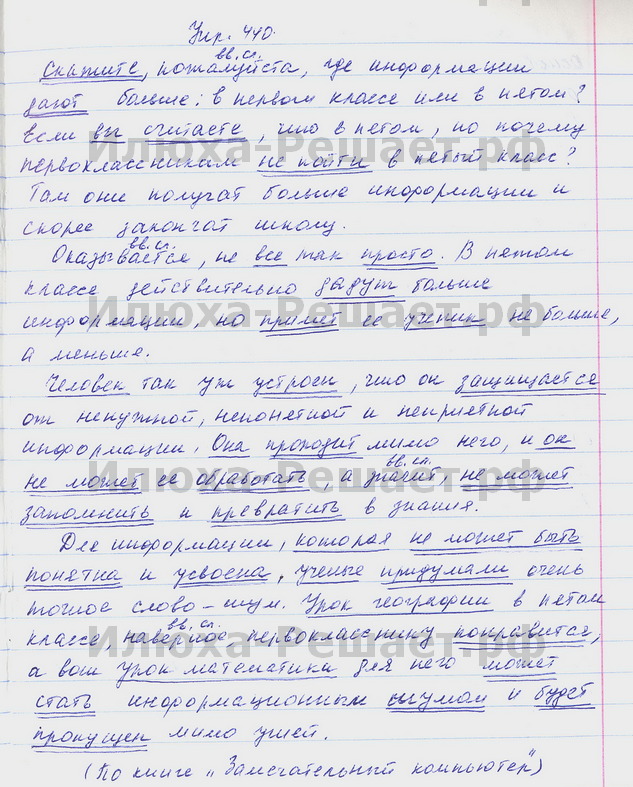 Упр. 440.
вв. сл.
Скажите, пожалуйста, где информации
дают больше: в первом классе или в пятом?
Если вы считаете, что в пятом, но почему
первоклассникам не пойти в пятый класс?
Там они получат больше информации и
скорее закончат школу.
вв. сл.
Оказывается, не все так просто. В пятом
классе действительно дадут больше
информации, но примет ее ученик не больше,
а меньше.
Человек так уж устроен, что он защищается
от ненужной, непонятной и неприятной
информации. Она проходит мимо него, и он
вв. сл.
не может ее обработать, а значит, не может
запомнить и превратить в знания.
Для информации, которая не может быть
понятна и усвоена, ученые придумали очень
точное слово - шум. Урок географии в пятом
вв. сл.
классе, наверное, первокласснику понравится,
а вот урок математики для него может
стать информационным шумом и будет
пропущен мимо ушей.
(По книге „Замечательный компьютер")
Илюха-Решает.рф
Илюха-Решает.рф
Илюха-Решает.рф
Илюха-Решает.рф